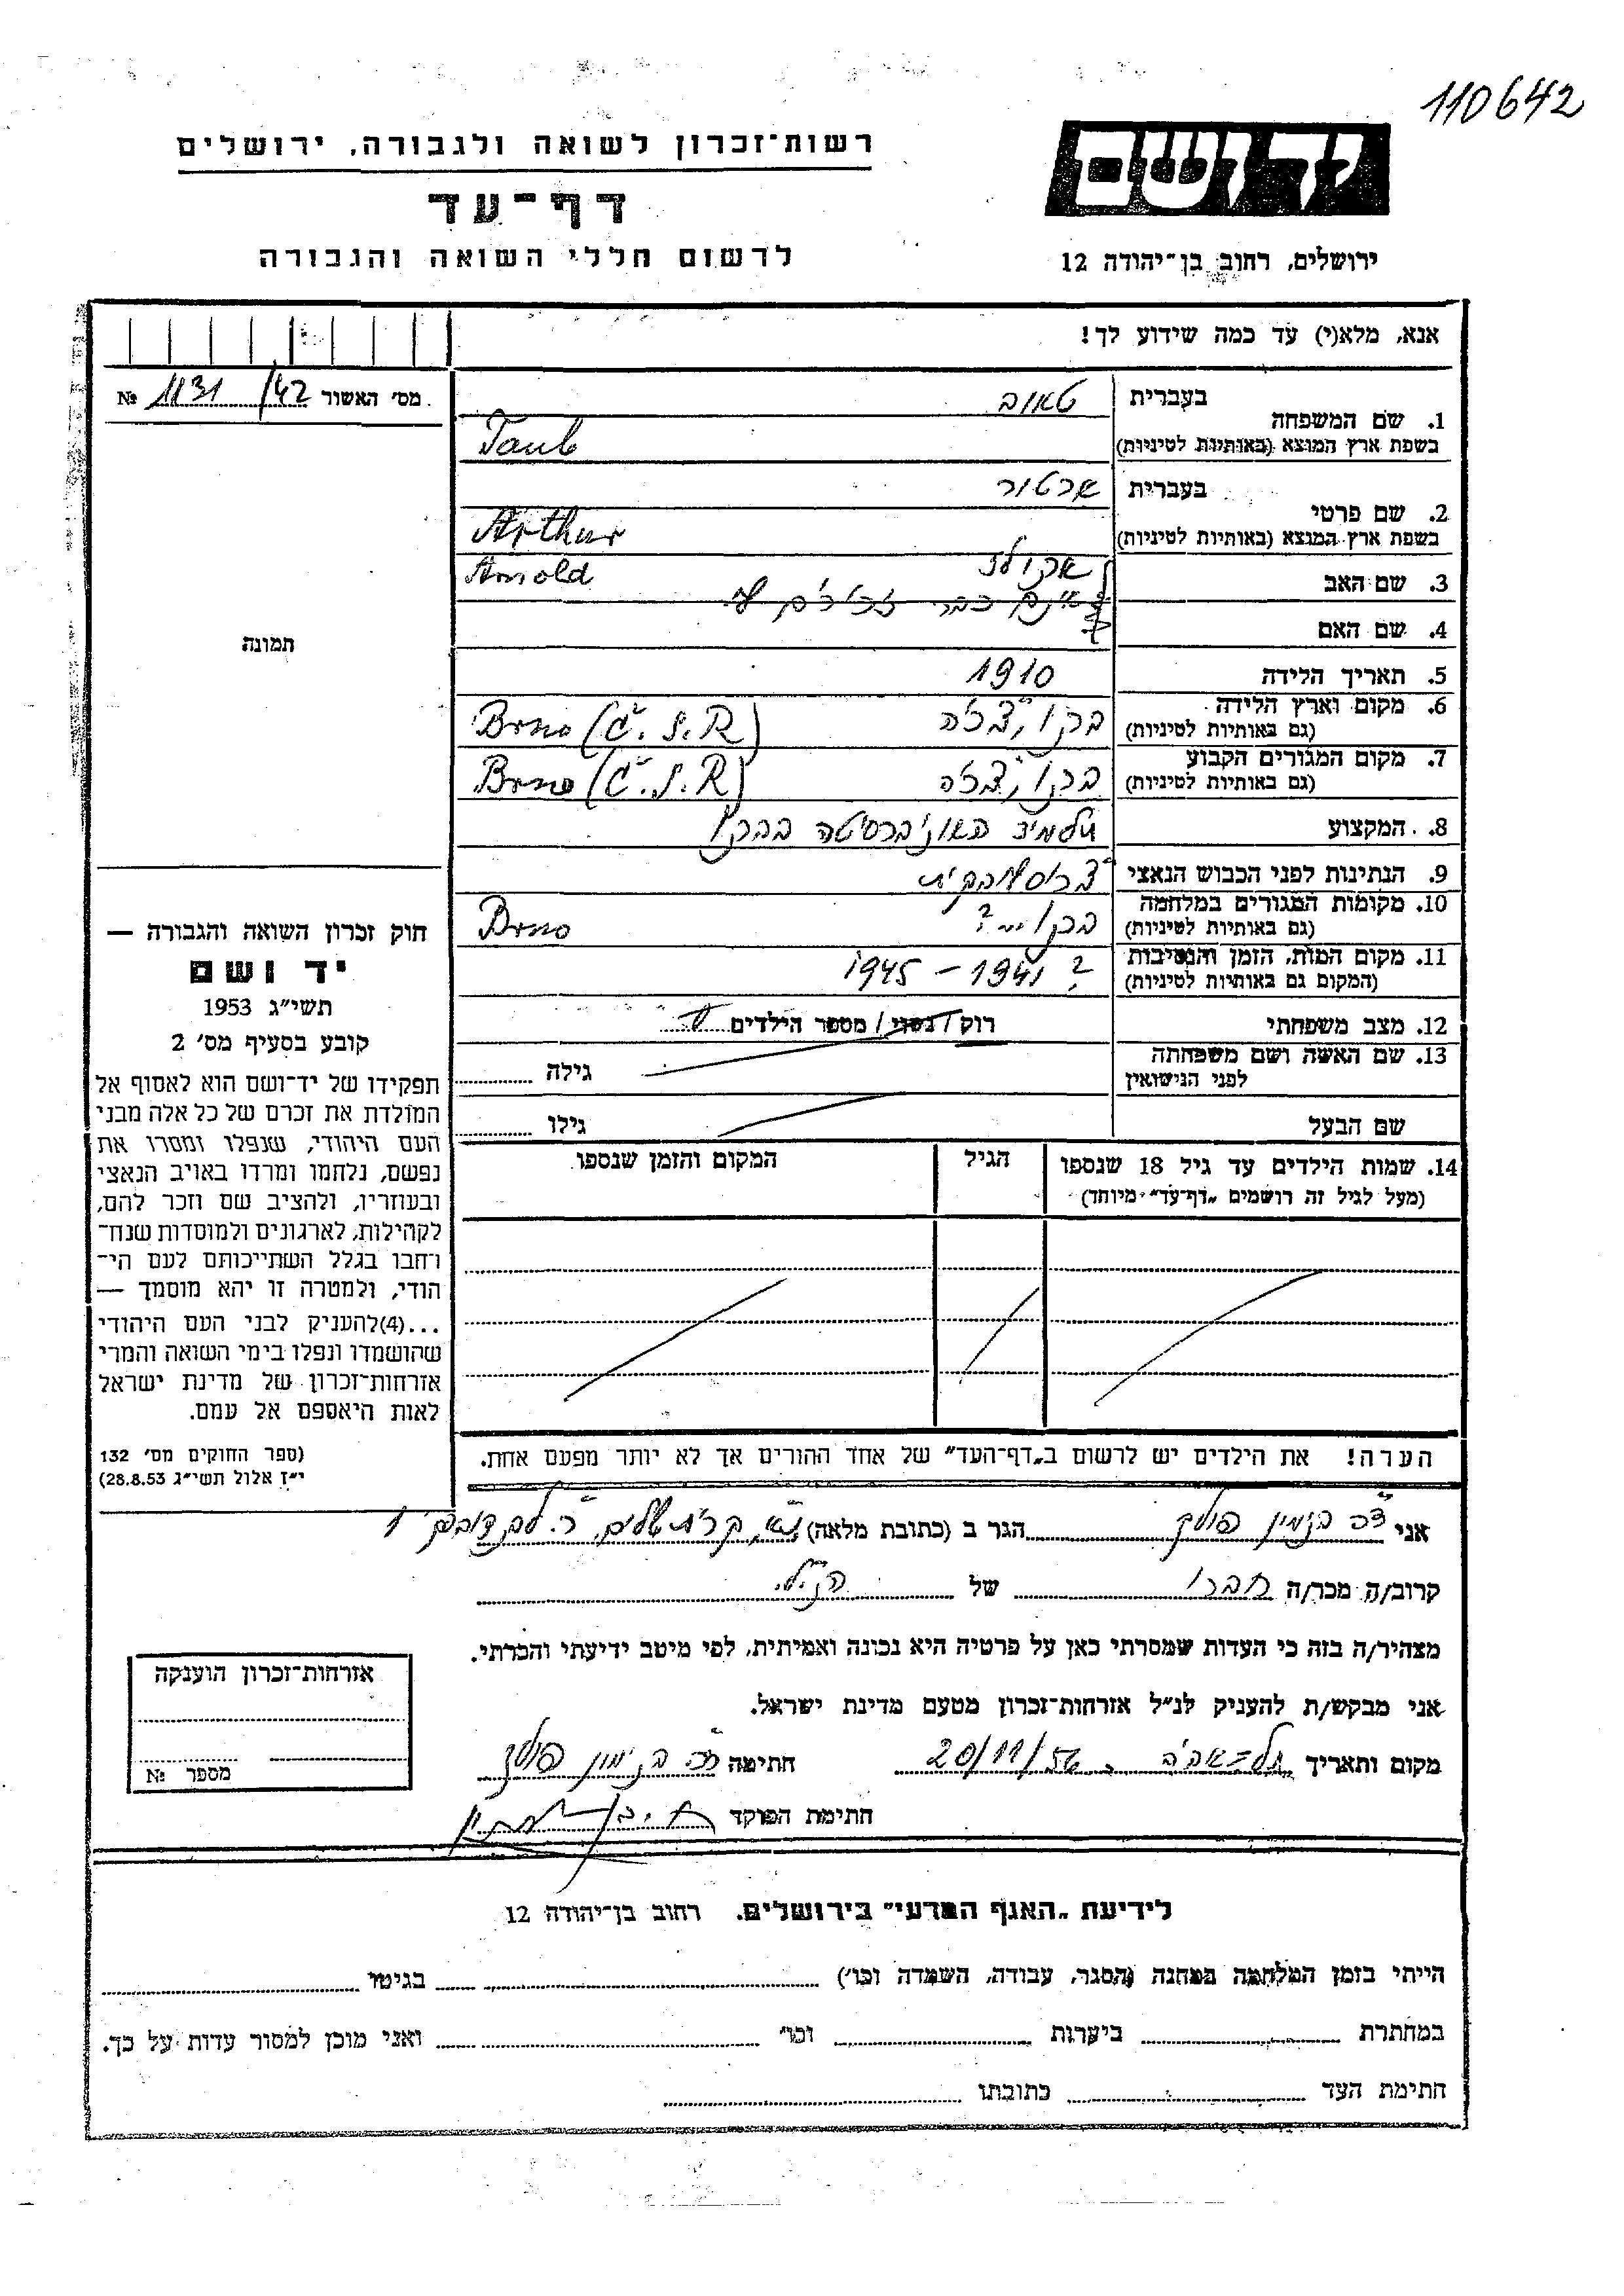 110642
יד ושם
רשות־זכרון לשואה ולגבורה, ירושלים
דף־עד
לרשום חללי השואה והגבורה
ירושלים, רחוב בן־יהודה 12
אנא, מלא(י) עד כמה שידוע לך!
מס׳ האשור 1131/42 №
1. שם המשפחה
בעברית טאוב
בשפת ארץ המוצא (באותיות לטיניות) Taub
2. שם פרטי
בעברית ארטור
בשפת ארץ המוצא (באותיות לטיניות) Arthur
3. שם האב ארנולד Arnold
4. שם האם
5. תאריך הלידה 1910
6. מקום וארץ הלידה ברנו, צ׳כיה Brno (Č.S.R)
(גם באותיות לטיניות)
7. מקום המגורים הקבוע ברנו, צ׳כיה Brno (Č.S.R)
(גם באותיות לטיניות)
8. המקצוע תלמיד האוניברסיטה בברנו
9. הנתינות לפני הכבוש הנאצי
10. מקומות המגורים במלחמה ברנו ...? Brno
(גם באותיות לטיניות)
11. מקום המות, הזמן והנסיבות ? 1941 – 1945
(המקום גם באותיות לטיניות)
12. מצב משפחתי רוק / נשוי / מספר הילדים
13. שם האשה ושם משפחתה
לפני הנישואין
גילה
שם הבעל
גילו
14. שמות הילדים עד גיל 18 שנספו
(מעל לגיל זה רושמים „דף־עד״ מיוחד)
הגיל
המקום והזמן שנספו
הערה! את הילדים יש לרשום ב„דף־העד״ של אחד ההורים אך לא יותר מפעם אחת.
תמונה
חוק זכרון השואה והגבורה —
יד ושם
תשי״ג 1953
קובע בסעיף מס׳ 2
תפקידו של יד־ושם הוא לאסוף אל
המולדת את זכרם של כל אלה מבני
העם היהודי, שנפלו ומסרו את
נפשם, נלחמו ומרדו באויב הנאצי
ובעוזריו, ולהציב שם וזכר להם,
לקהילות, לארגונים ולמוסדות שנח־
רבו בגלל השתייכותם לעם הי־
הודי, ולמטרה זו יהא מוסמך —
...(4)להעניק לבני העם היהודי
שהושמדו ונפלו בימי השואה והמרי
אזרחות־זכרון של מדינת ישראל
לאות היאספם אל עמם.
(ספר החוקים מס׳ 132
י״ז אלול תשי״ג 28.8.53)
אני בנימין פולק הגר ב (כתובת מלאה)
קרוב/ה מכר/ה חברו של הנ״ל
מצהיר/ה בזה כי העדות שמסרתי כאן על פרטיה היא נכונה ואמיתית, לפי מיטב ידיעתי והכרתי.
אני מבקש/ת להעניק לנ״ל אזרחות־זכרון מטעם מדינת ישראל.
מקום ותאריך תל־אביב 20/11/56 חתימה בנימין פולק
חתימת הפוקד
אזרחות־זכרון הוענקה
מספר №
לידיעת „האגף המדעי״ בירושלים, רחוב בן־יהודה 12
הייתי בזמן המלחמה במחנה (הסגר, עבודה, השמדה וכו׳) בגיטו
במחתרת ביערות וכו׳ ואני מוכן למסור עדות על כך.
חתימת העד כתובתו